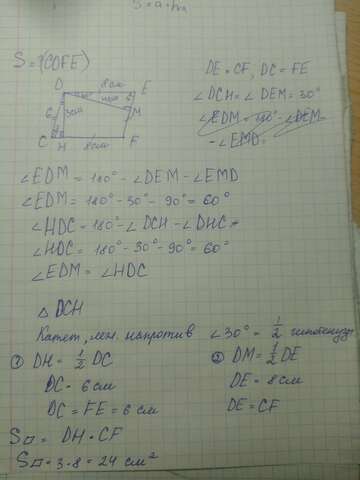 S = a·h
S = ?(CDFE)
D 8см E
6 3см 4см 6 M
C H 8см F
DE = CF, DC = FE
∠DCH = ∠DEM = 30°
∠EDM = 180° - ∠DEM
- ∠EMD =
∠EDM = 180° - ∠DEM - ∠EMD
∠EDM = 180° - 30° - 90° = 60°
∠HDC = 180° - ∠DCH - ∠DHC =
∠HDC = 180° - 30° - 90° = 60°
∠EDM = ∠HDC
△ DCH
Катет, леж. напротив ∠30° = 1/2 гипотенузы
① DH = 1/2 DC
DC = 6 см
DC = FE = 6 см
S▱ = DH · CF
S▱ = 3 · 8 = 24 см²
② DM = 1/2 DE
DE = 8 см
DE = CF